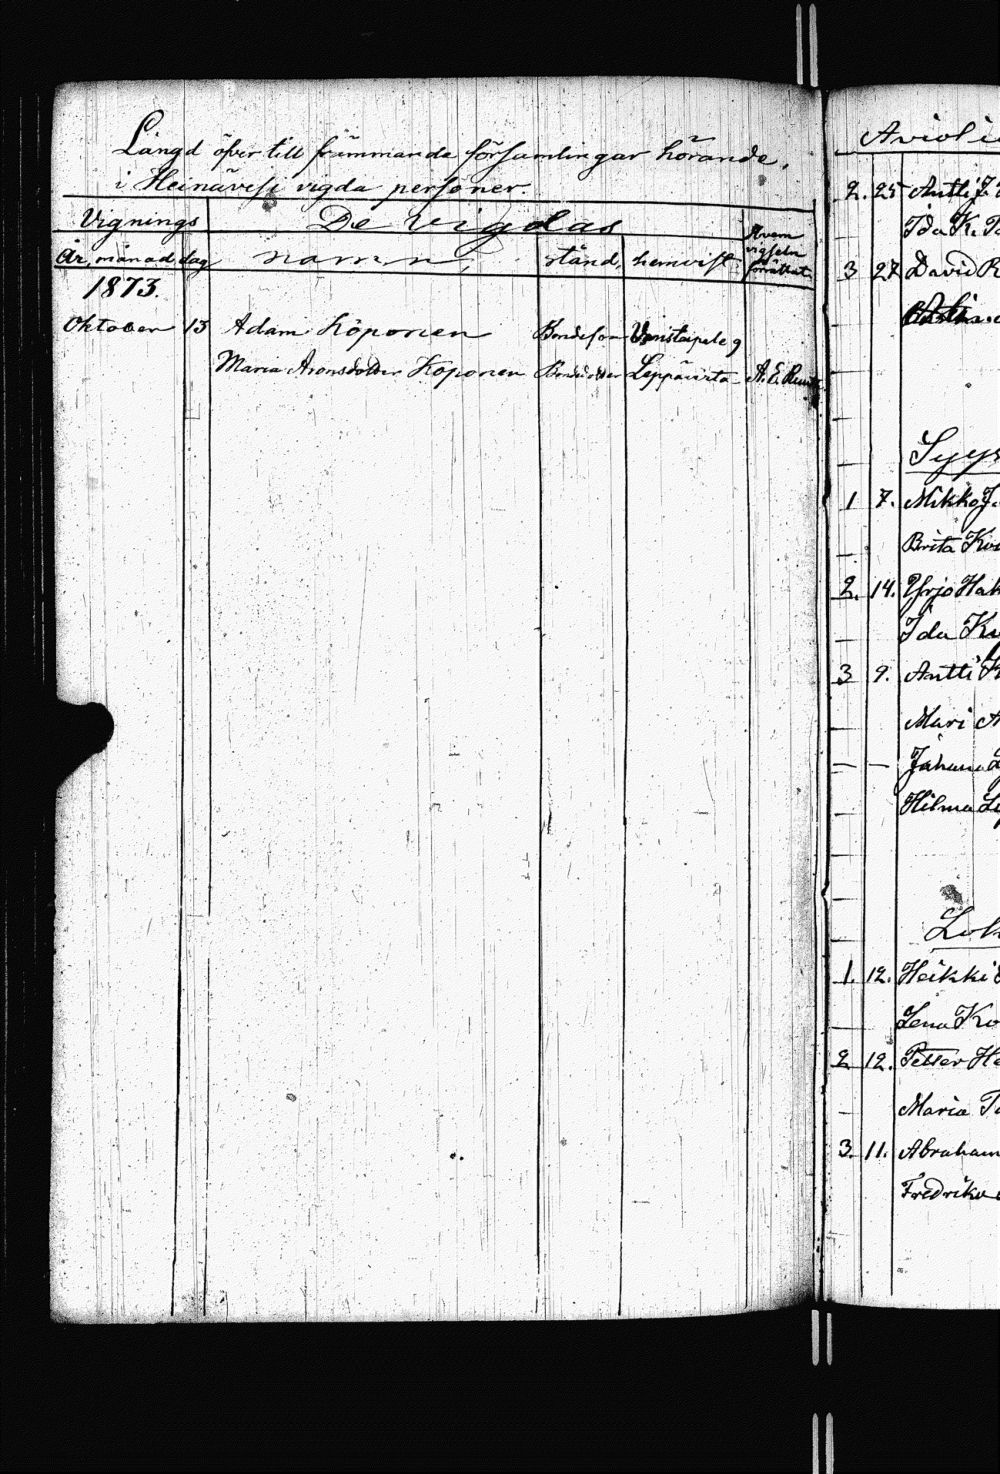 Längd öfver till främmande församlingar hörande,
i Heinävesi vigda personer.
Vignings
De vigdas
Hvem vigseln förrättat
År, månad, dag
namn,
stånd,
hemvist
1873.
Oktober 13 Adam Köponen Bondeson
Maria Aronsdotter Koponen Bondedotter Leppävirta A. E.
Aviol
2. 25 Antti J.
Ida K.
3 27 David R
Syys
1 7. Mikko J.
Brita
2. 14. Yrjö Hak
Ida
3 9. Antti
Mari
— — Juhana
Hilma
Lok
1. 12. Heikki
Lena Ko
2 12. Petter He
Maria
3. 11. Abraham
Fredrika